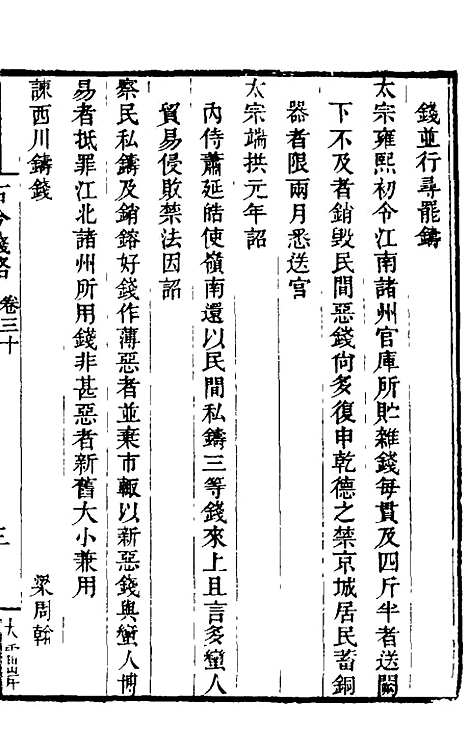 錢並行尋罷鑄
太宗雍熙初令江南諸州官庫所貯雜錢每貫及四斤半者送闕
下不及者銷毀民間惡錢尙多復申乾德之禁京城居民蓄銅
器者限兩月悉送官
太宗端拱元年詔
內侍蕭延皓使嶺南還以民間私鑄三等錢來上且言多蠻人
貿易侵敗禁法因詔
察民私鑄及銷鎔好錢作薄惡者並棄市輒以新惡錢與蠻人博
易者抵罪江北諸州所用錢非甚惡者新舊大小兼用
諫西川鑄錢　梁周翰
古今錢略　卷三十　三